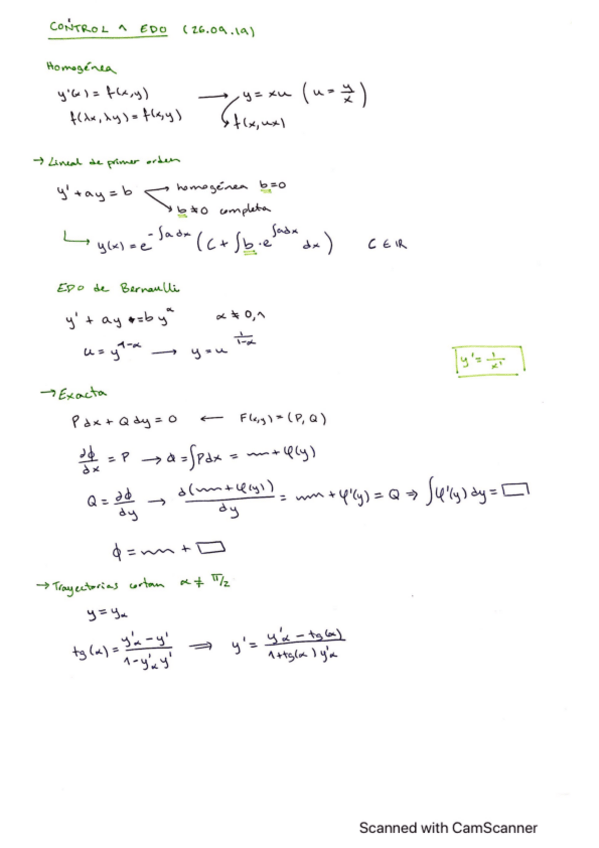 CONTROL 1 EDO (26.09.19)
Homogénea
y'(x) = f(x,y) → y = xu (u = y/x)
f(λx, λy) = f(x,y) f(x, ux)
→ Lineal de primer orden
y' + ay = b → homogénea b=0
→ b ≠ 0 completa
y(x) = e^{-∫a dx} (C + ∫b·e^{∫a dx} dx) C ∈ ℝ
EDO de Bernaulli
y' + ay = b y^α α ≠ 0,1
u = y^{1-α} → y = u^{1/(1-α)}
y' = 1/x'
→ Exacta
P dx + Q dy = 0 ← F(x,y) = (P, Q)
∂ϕ/dx = P → Q = ∫P dx = m + φ(y)
Q = ∂ϕ/dy → d(m + φ(y))/dy = m + φ'(y) = Q ⇒ ∫φ'(y) dy = □
ϕ = m + □
→ Trayectorias cortan α ≠ π/2
y = yα
tg(α) = (y'α - y')/(1 - y'α y') ⇒ y' = (y'α - tg(α))/(1 + tg(α) y'α)
Scanned with CamScanner